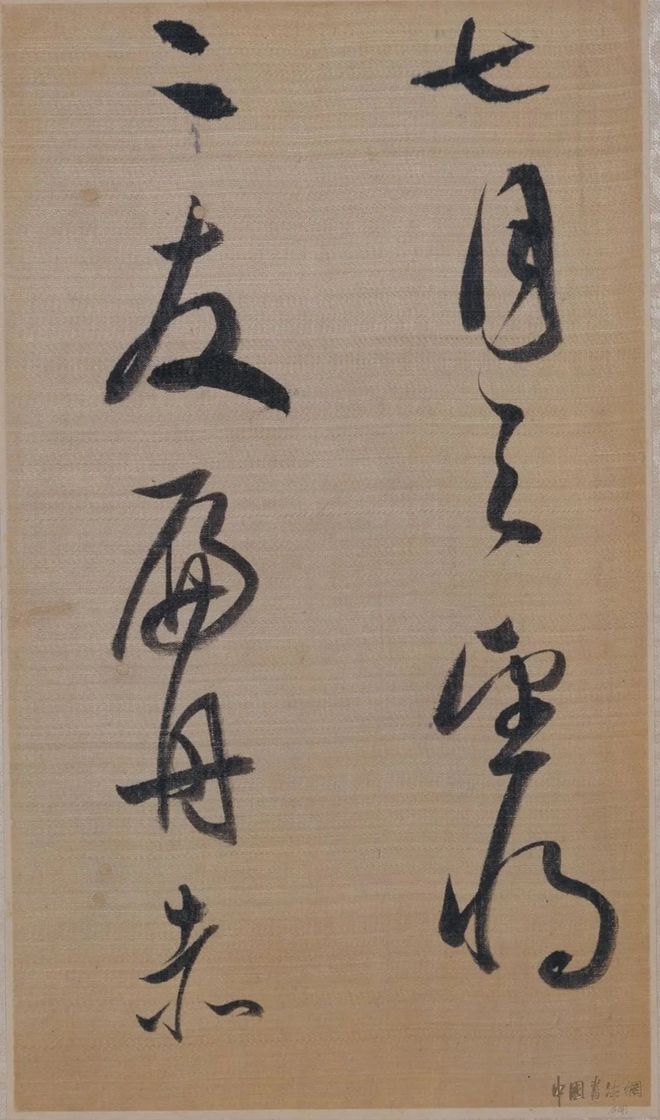 七月之望将
二友扁舟赤
中國書法網